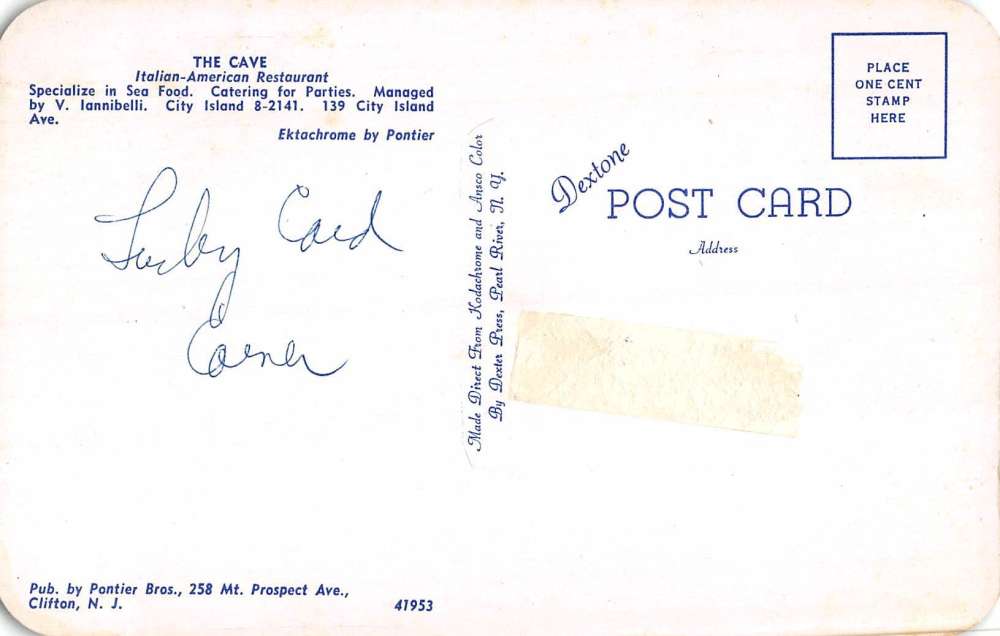 THE CAVE
Italian-American Restaurant
Specialize in Sea Food. Catering for Parties. Managed
by V. Iannibelli. City Island 8-2141. 139 City Island
Ave.
Ektachrome by Pontier
Card
Corner
Pub. by Pontier Bros., 258 Mt. Prospect Ave.,
Clifton, N. J.
41953
Made Direct From Kodachrome and Ansco Color
By Dexter Press, Pearl River, N. Y.
PLACE
ONE CENT
STAMP
HERE
Dextone
POST CARD
Address